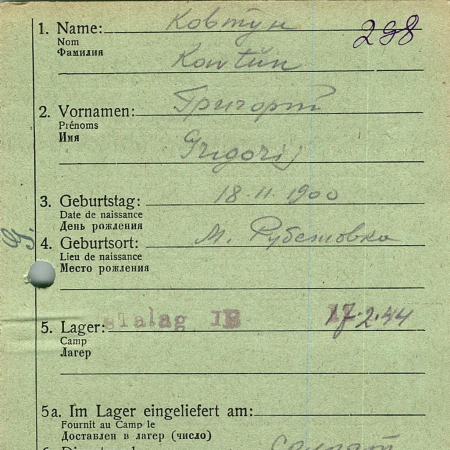 1. Name: Ковтун 298
Nom
Фамилия Kowtun
2. Vornamen: Григорий
Prénoms
Имя Grigorij
3. Geburtstag: 18.11.1900
Date de naissance
День рождения
4. Geburtsort: м. Рубетовка
Lieu de naissance
Место рождения
5. Lager: Stalag IB 17.2.44
Camp
Лагер
5a. Im Lager eingeliefert am:
Fournit au Camp le
Доставлен в лагер (число)